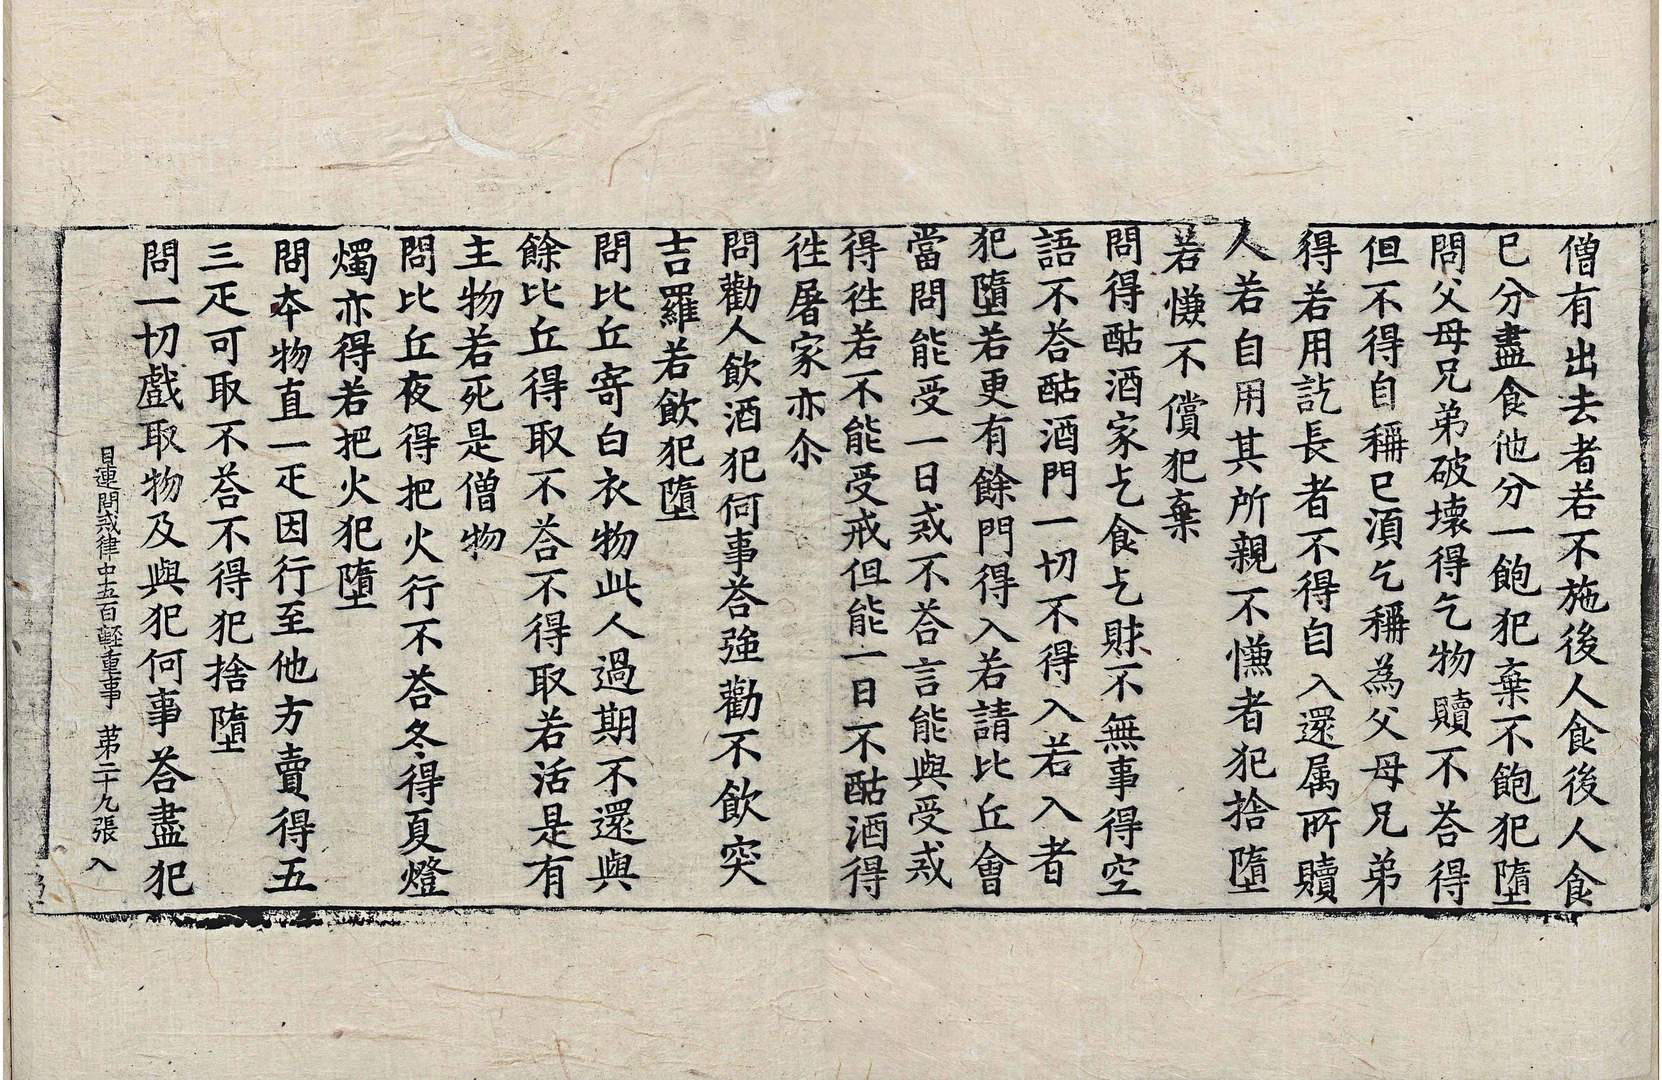 僧有出去者若不施後人食後人食
已分盡食他分一飽犯棄不飽犯墮
問父母兄弟破壞得乞物贖不荅得
但不得自稱已湏乞稱為父母兄弟
得若用訖長者不得自入還属所贖
人若自用其所親不慊者犯捨墮
若慊不償犯棄
問得酤酒家乞食乞財不無事得空
語不荅酤酒門一切不得入若入者
犯墮若更有餘門得入若請比丘會
當問能受一日戒不荅言能與受戒
得徃若不能受戒但能一日不酤酒得
徃屠家亦尒
問勸人飲酒犯何事荅強勸不飲突
吉羅若飲犯墮
問比丘寄白衣物此人過期不還與
餘比丘得取不荅不得取若活是有
主物若死是僧物
問比丘夜得把火行不荅冬得夏燈
燭亦得若把火犯墮
問夲物直一疋因行至他方賣得五
三疋可取不荅不得犯捨墮
問一切戲取物及與犯何事荅盡犯
目連問戒律中五百輕重事　苐二十九張　入